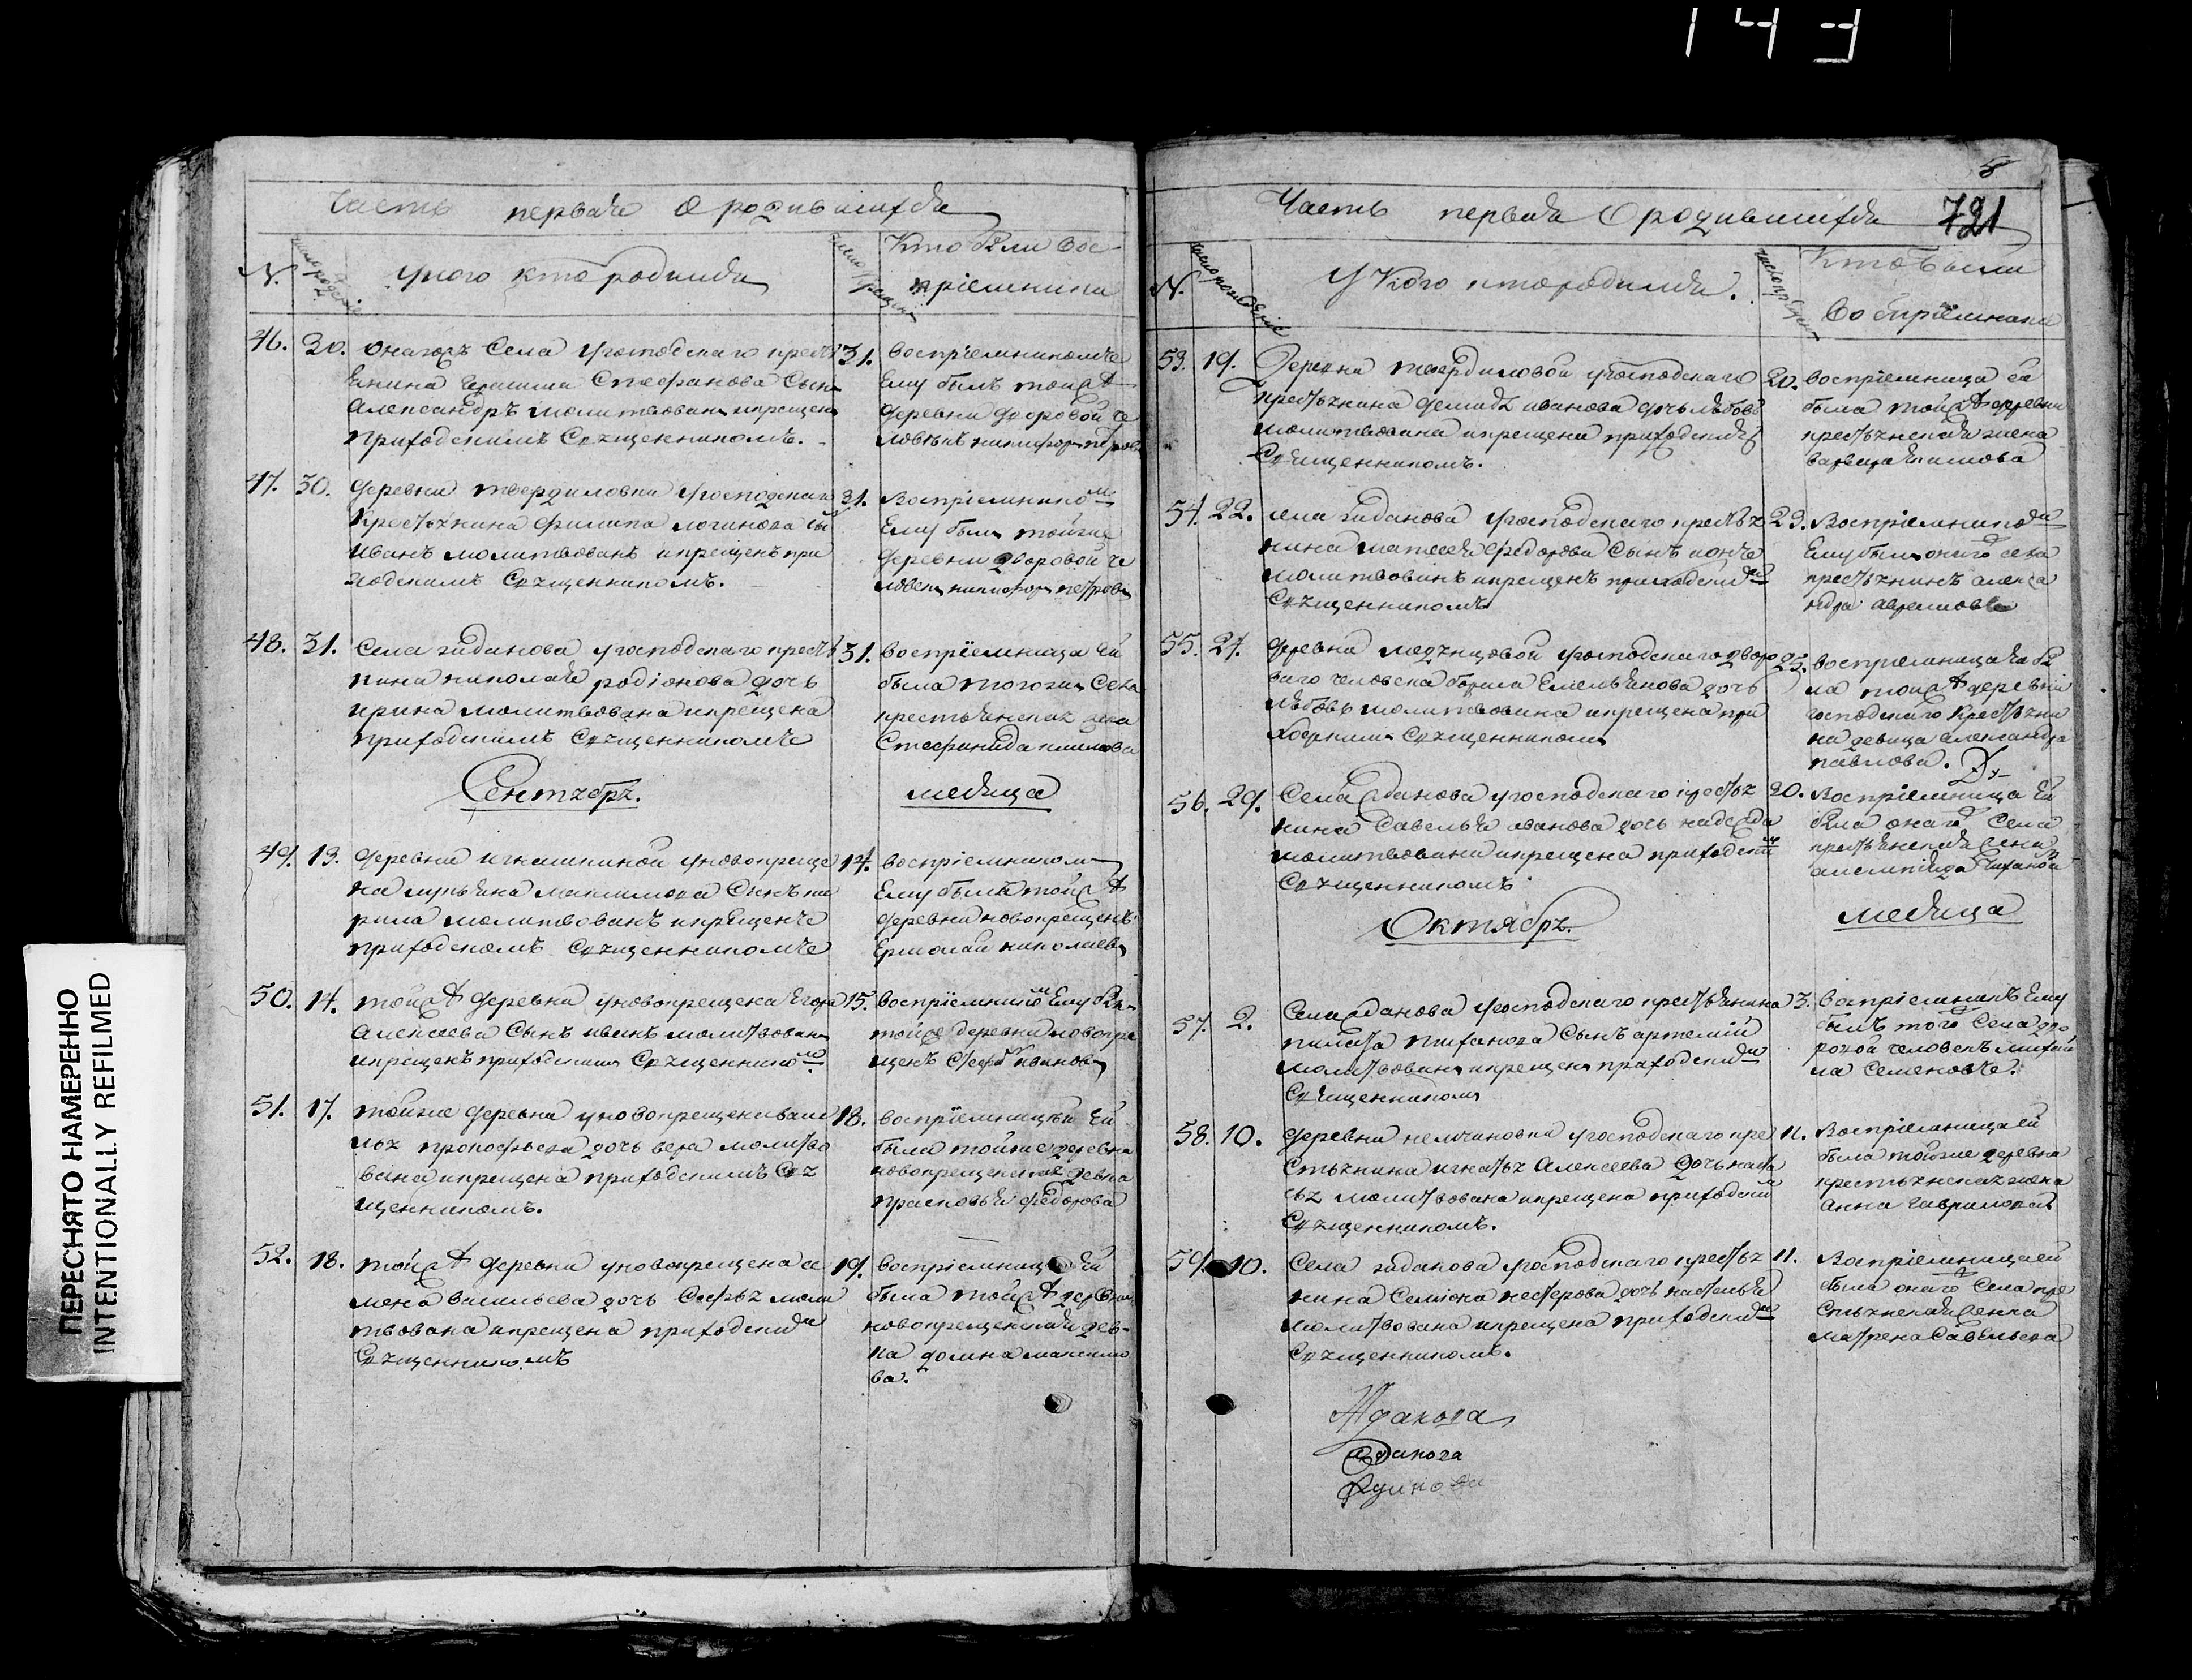 143
ПЕРЕСНЯТО НАМЕРЕННО
INTENTIONALLY REFILMED
Часть первая О родившихся
N.
число рождения
У кого кто родился
число крещения
Кто были вос-
пріемники
46.
30.
Села у господскаго кресть
янина Стефанова Сынъ
Александръ молитвованъ и крещенъ
Приходскимъ Священникомъ.
31.
восприемникомъ
Ему былъ тойже
деревни дворовой че
ловѣкъ никифоръ петровъ
47.
30.
деревни твердиловки у господскаго
Крестьянина филипа логинова сы
Иванъ молитвованъ и крещенъ при
ходскимъ Священникомъ.
31.
Воспріемникомъ
Ему былъ тойже
деревни дворовой че
ловекъ никифоръ петровъ
48.
31.
Села жданова у господскаго кресть
янина николая родіонова дочь
ирина молитвована и крещена
приходскимъ Священникомъ
31.
воспріемница Ей
была тогожъ Села
крестьянская жена
Стефанида
Сентябрь.
месяца
49.
13.
деревни игнашкиной у новокреще
на лукьяна максимова Сынъ ки
рила молитвованъ и крещенъ
приходскомъ Священникомъ
14.
воспріемникомъ
Ему былъ тойже
деревни новокрещенъ
Ермолай николаевъ
50.
14.
тойже деревни у новокрещена Егора
Алексеева Сынъ иванъ молитвованъ
и крещенъ приходскимъ Священникомъ
15.
воспріемникомъ Ему бы
тойже деревни новокре
щенъ ивановъ
51.
17.
тойже деревни у новокрещена
прокофьева дочь вера молитво
вана и крещена приходскимъ Свя
щенникомъ.
18.
воспріемницей Ей
была тойже деревни
новокрещенская девка
прасковья федорова
52.
18.
тойже деревни у новокрещена се
мена васильева дочь Софья моли
твована и крещена приходскимъ
Священникомъ
19.
воспріемница Ей
была тойже деревни
новокрещенская дев-
ка домна максимо
ва.
5
721
Часть первая О родившихся
N.
число рождения
У Кого кто родился.
число крещения
Кто были
воспріемники
53.
19.
Деревни твердиловой у господскаго
крестьянина демида иванова дочь любовь
молитвована и крещена приходскимъ
Священникомъ.
20.
воспріемница ей
была тойже деревни
крестьянская жена
варвара
54.
22.
села жданова у господскаго кресть
янина матвея федорова Сынъ
молитвованъ и крещенъ приходскимъ
Священникомъ
23.
Воспріемникомъ
Ему былъ онаго села
крестьянинъ алекса
ндръ
55.
24.
деревни у господскаго дворо
ваго человека бориса Емельянова дочь
любовь молитвована и крещена при
ходскимъ Священникомъ
25.
воспріемница Ей бы
ла тойже деревни
господскаго крестьяни
на девица александра
павлова.
56.
29.
Села жданова у господскаго кресть
янина Савелья иванова дочь надежда
молитвована и крещена приходским
Священникомъ
30.
Воспріемница Ей
была онаго Села
крестьянская жена
Октябрь.
месяца
57.
2.
Села жданова у господскаго крестьянина
Сынъ артемій
молитвованъ и крещенъ приходскимъ
Священникомъ
3.
воспріемникъ Ему
былъ того Села дво
ровой человекъ михай
ла Семеновъ.
58.
10.
деревни немчиновки у господскаго кре
стьянина игнатья Алексеева дочь наста
сья молитвована и крещена приходским
Священникомъ.
11.
Воспріемница ей
была тойже деревни
крестьянская жена
Анна гаврилова
59.
10.
Села жданова у господскаго кресть
янина Семіона нестерова дочь настасья
молитвована и крещена приходскимъ
Священникомъ.
11.
Воспріемница ей
была онаго Села кре
стьянская женка
матрена Савельева
Жданова
жданова